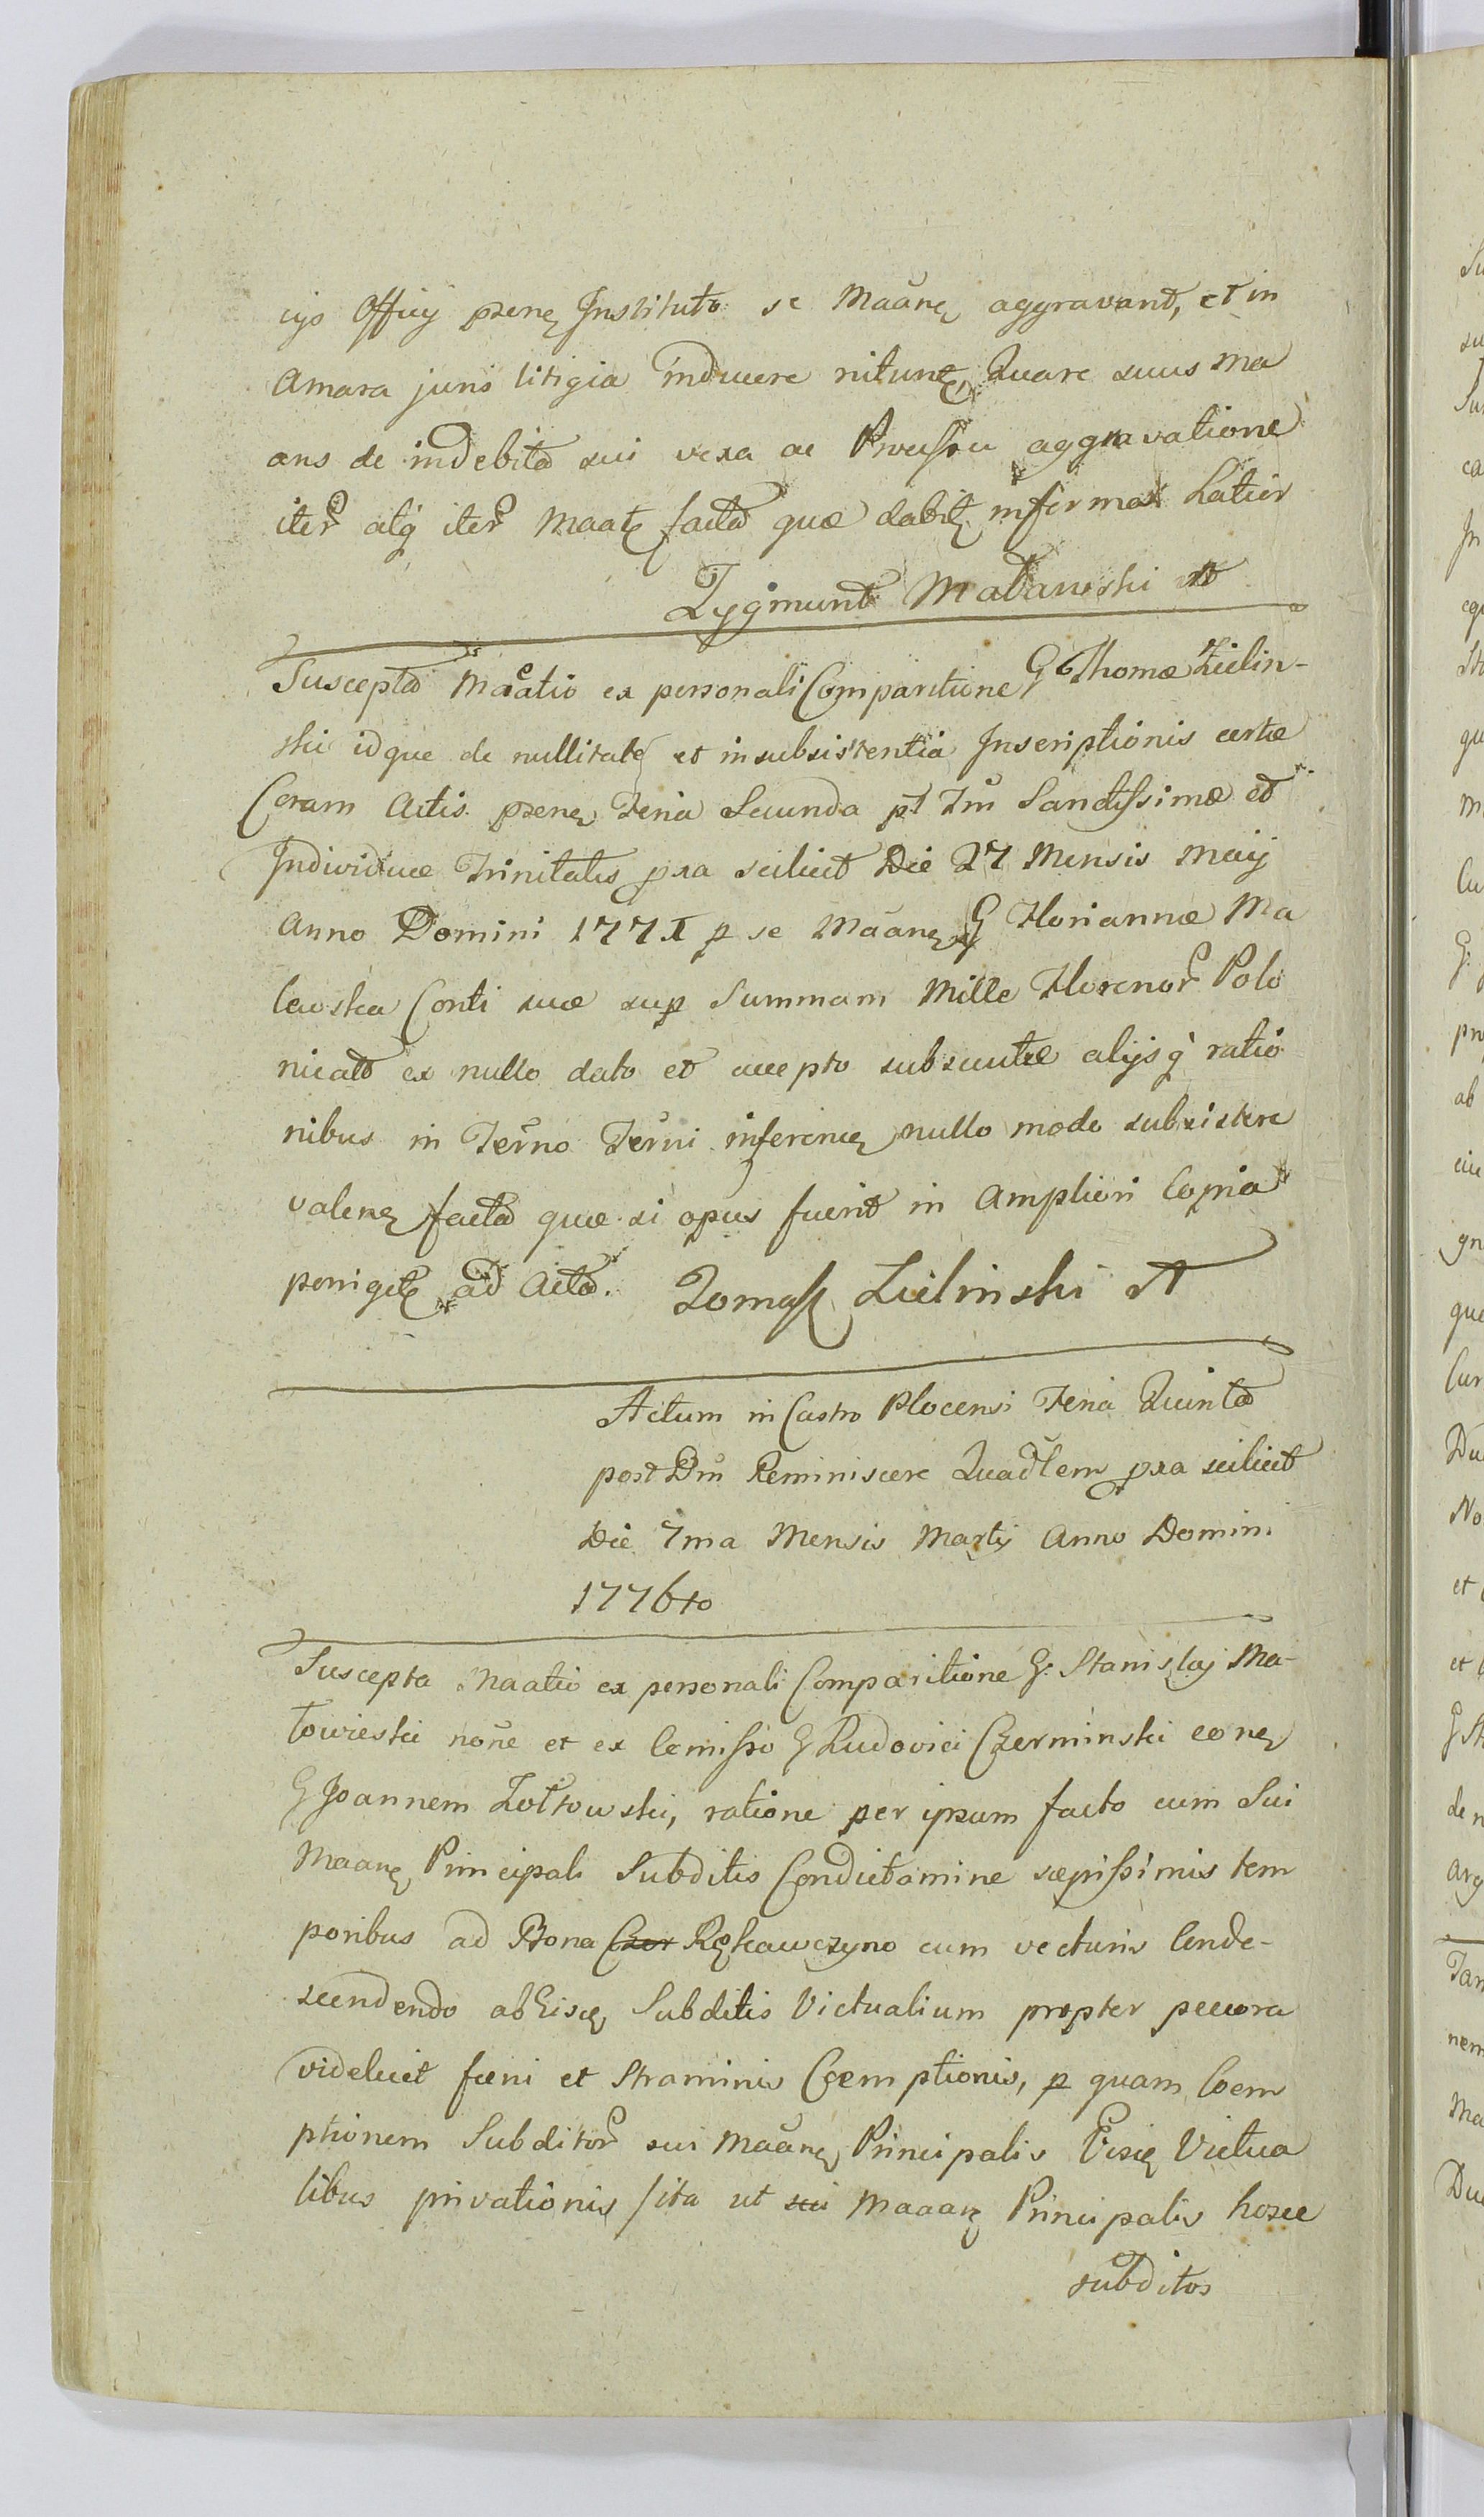 ijs Officij pzene Instituto se Maane aggravant, et in
amara juris litigia inducere nitunt, Quare suus Ma
ans de indebita sui vexa ac Processu aggravatione
iter atq iter Maat facta quæ dabit in forma Latior
Zygmunt Madanowski
Suscepta Maatio ex personali Comparitione G Thomæ Zielin-
ski idque de nullitate et insubsistentia Inscriptionis certæ
Coram Actis pzene Feria Secunda pt Fm Sanctissimæ et
Individuæ Trinitatis pxa scilicet Die 27 Mensis Maij
Anno Domini 1771 p se Maane G Floriannæ Ma
lewska Conti suæ sup Summam Mille Florenor Polo
nical ex nullo dato et accepto subsecutæ alijsq ratio
nibus in Terno Terni inferenc nullo modo subsistere
valene facta quæ si opus fuerit in ampliori Copia
porriget ad Acta. Tomasz Zielinski
Actum in Castro Plocensi Feria Quinta
post Dm Reminiscere Quadlem pxa scilicet
Die 7ma Mensis Martij Anno Domini
1776to
Suscepta Maatio ex personali Comparitione G: Stanislaj Ma-
towieski noe et ex Comisso G Ludovici Czerminski eone
G Joannem Zołtowski, ratione per ipsum facto cum Sui
Maane Principali Subditis Condictamine sæpissimis tem
poribus ad Bona Czer Rękawczyno cum vecturis Conde-
scendendo ab Eisce Subditis Victualium propter peccora
videlicet fæni et Straminis Coemptionis, p quam Coem
ptionem Subditor sui Maane Principalis Eisce Victua
libus privationis /ita ut sui Maaane Principalis hosce
subditos